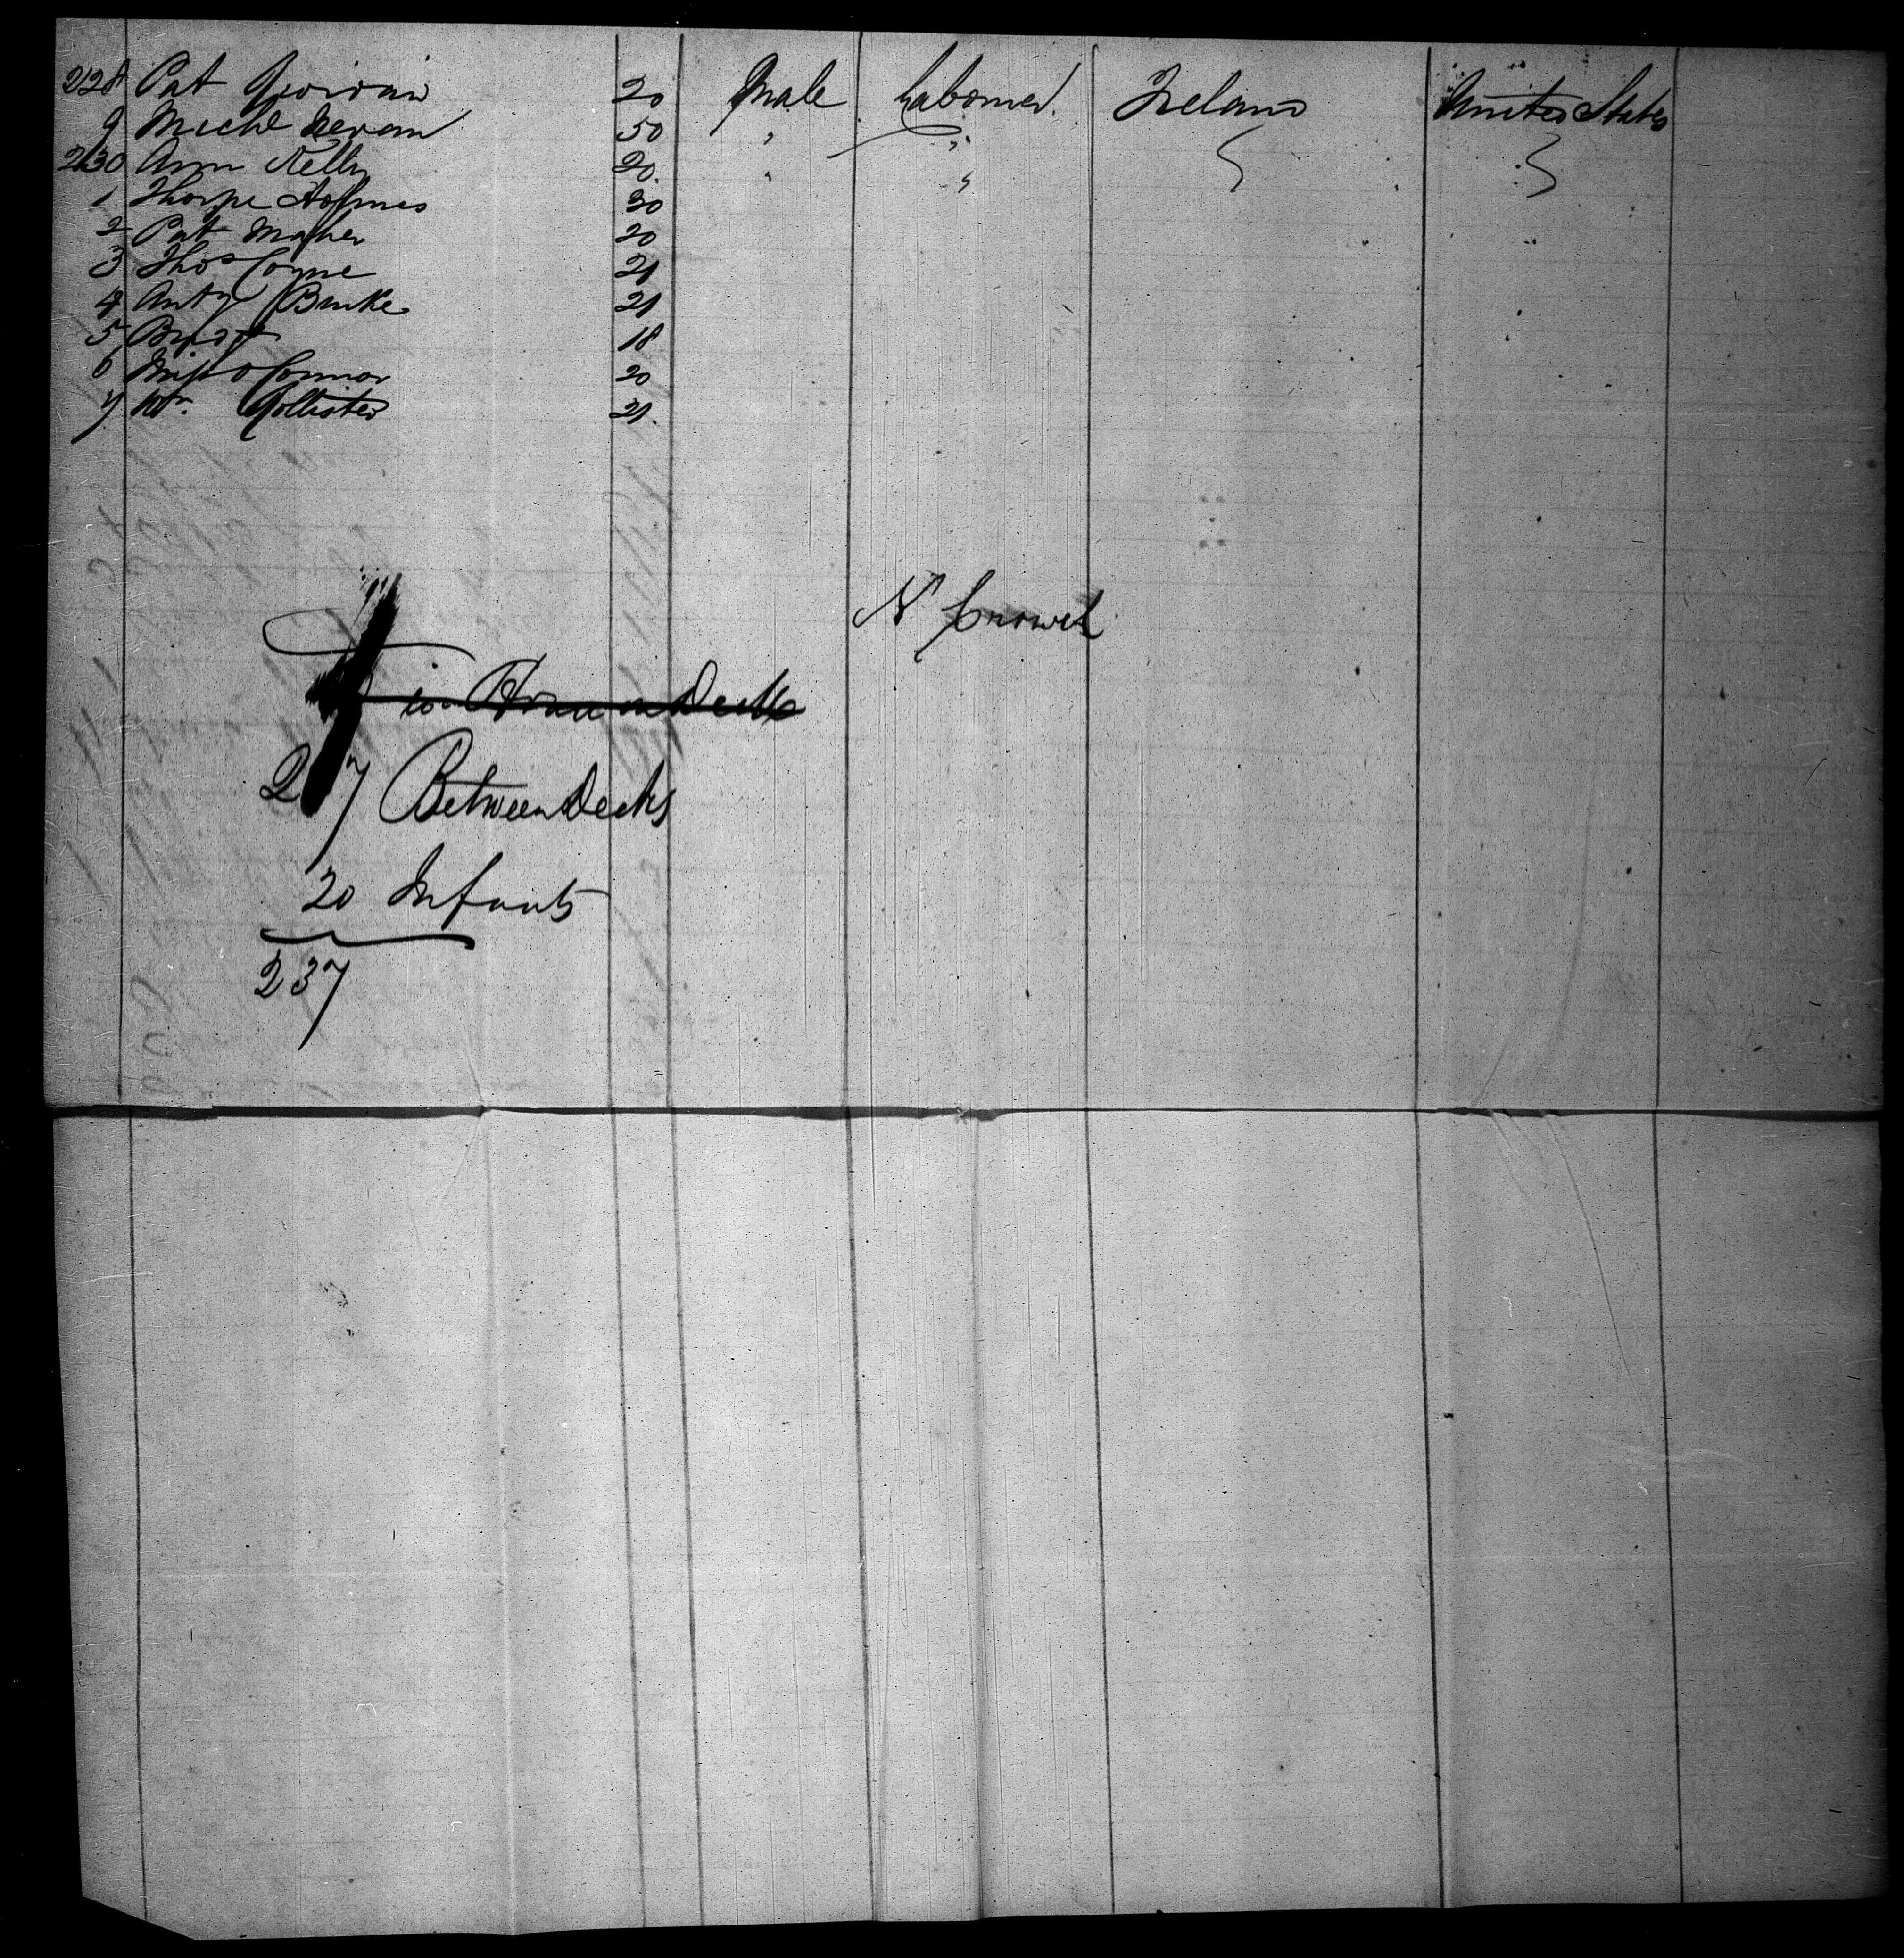 228 Pat 20 Male Labourer Ireland United States
9 Michl 50 " "
230 Ann Kelly 20 " "
1 Thorpe Holmes 30
2 Pat Maher 20
3 Thos Coyne 21
4 Anty Burke 21
5 Bridgt 18
6 O Connor 20
7 Wm. Collister 21
N Crowell
in Deck
217 Between Decks
20 Infants
237